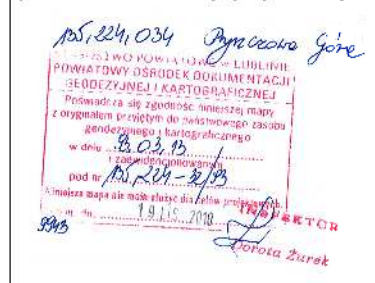 135,224,034 Góra
STAROSTWO POWIATOWE w LUBLINIE
POWIATOWY OŚRODEK DOKUMENTACJI
GEODEZYJNEJ I KARTOGRAFICZNEJ
Poświadcza się zgodność niniejszej mapy
z oryginałem przyjętym do państwowego zasobu
geodezyjnego i kartograficznego
w dniu 93.03.13
i zaewidencjonowanym
pod nr 135,224-32/93
Niniejsza mapa nie może służyć dla celów projektowych
dn. 19. LIS. 2010
INSPEKTOR
Dorota Żurek
9943